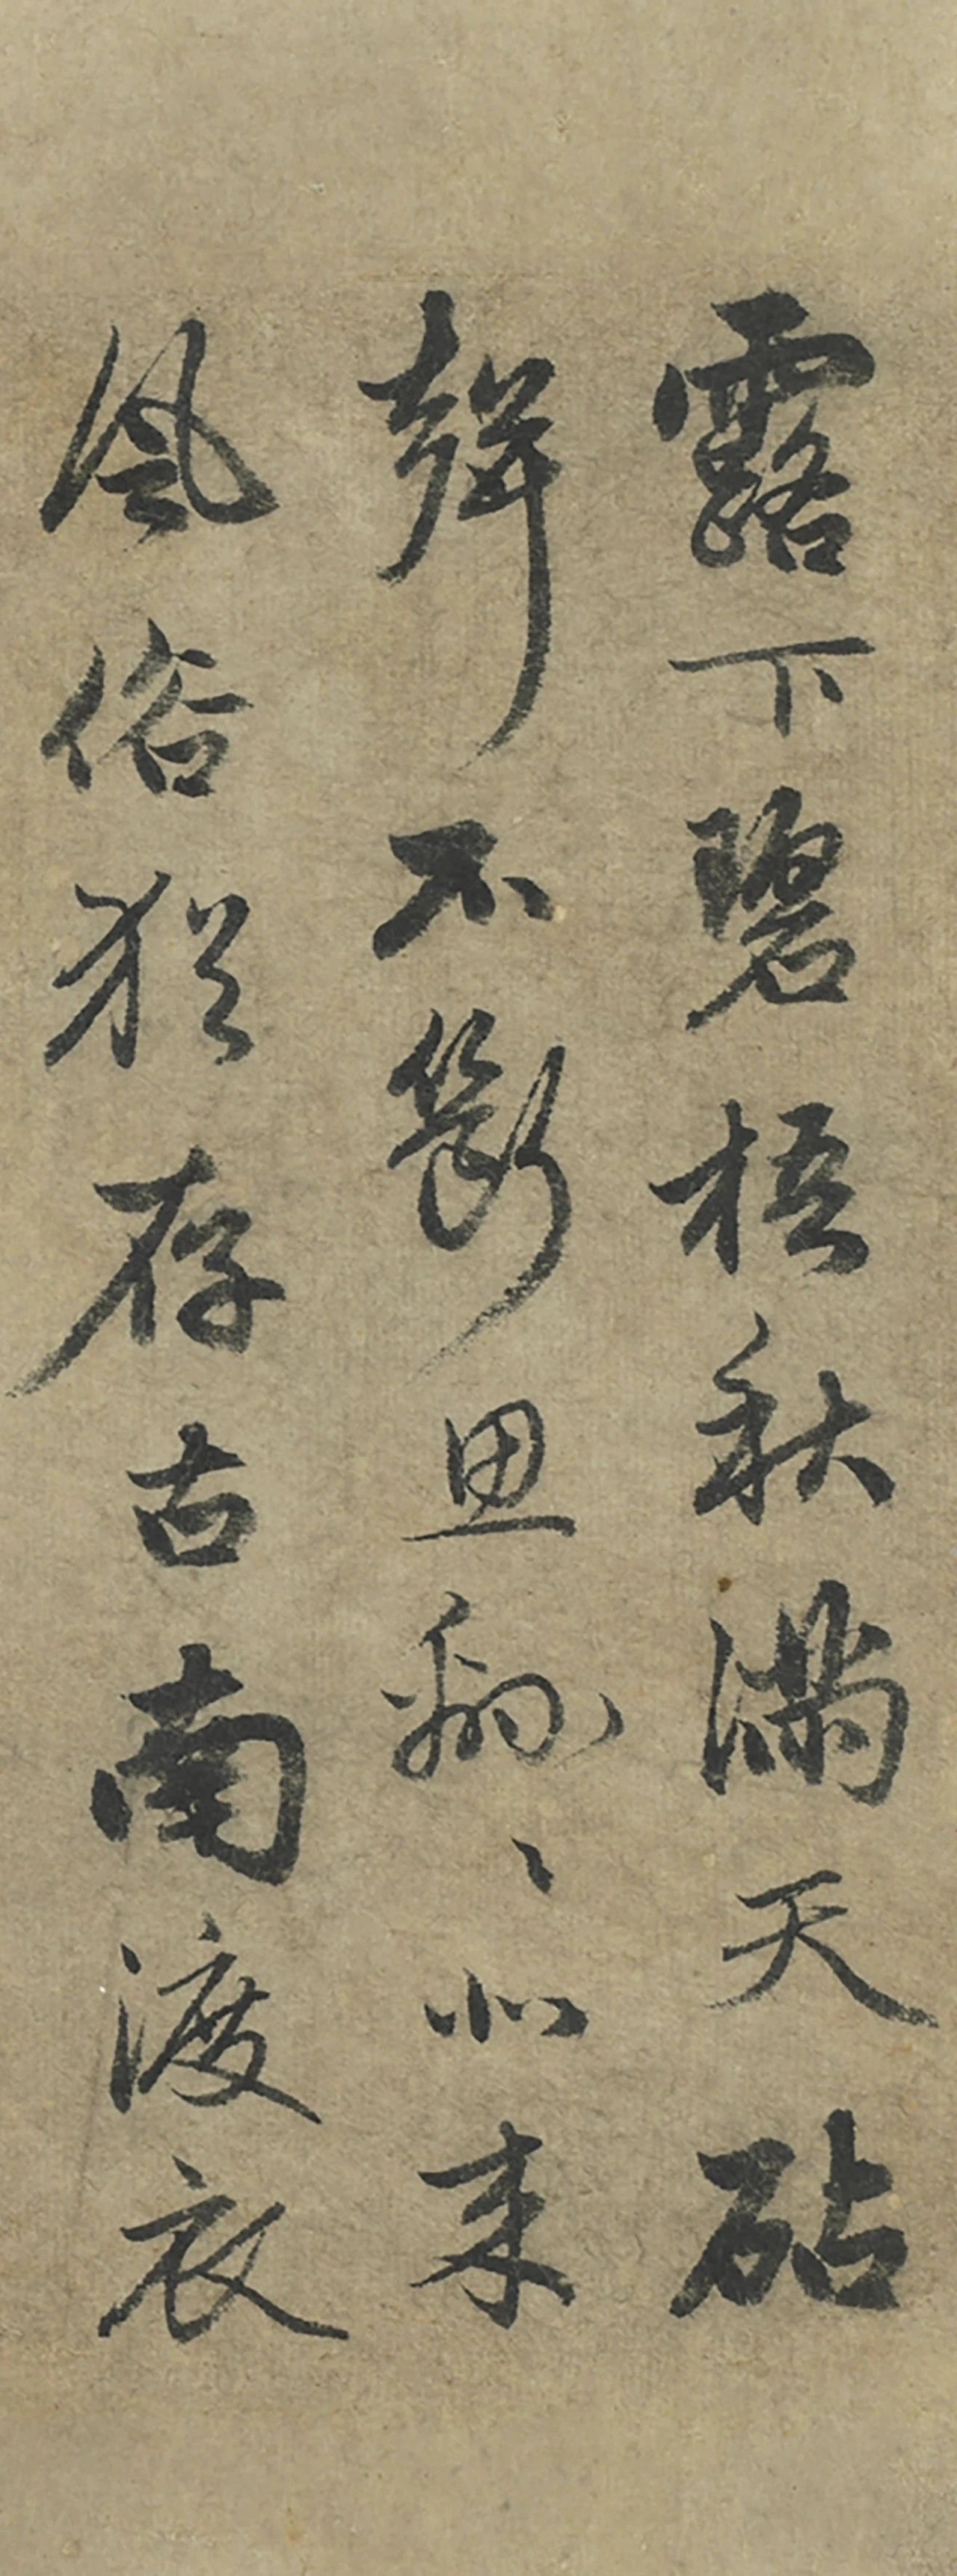 露下碧梧秋滿天砧
聲不斷思綿〻北来
風俗猶存古南渡衣